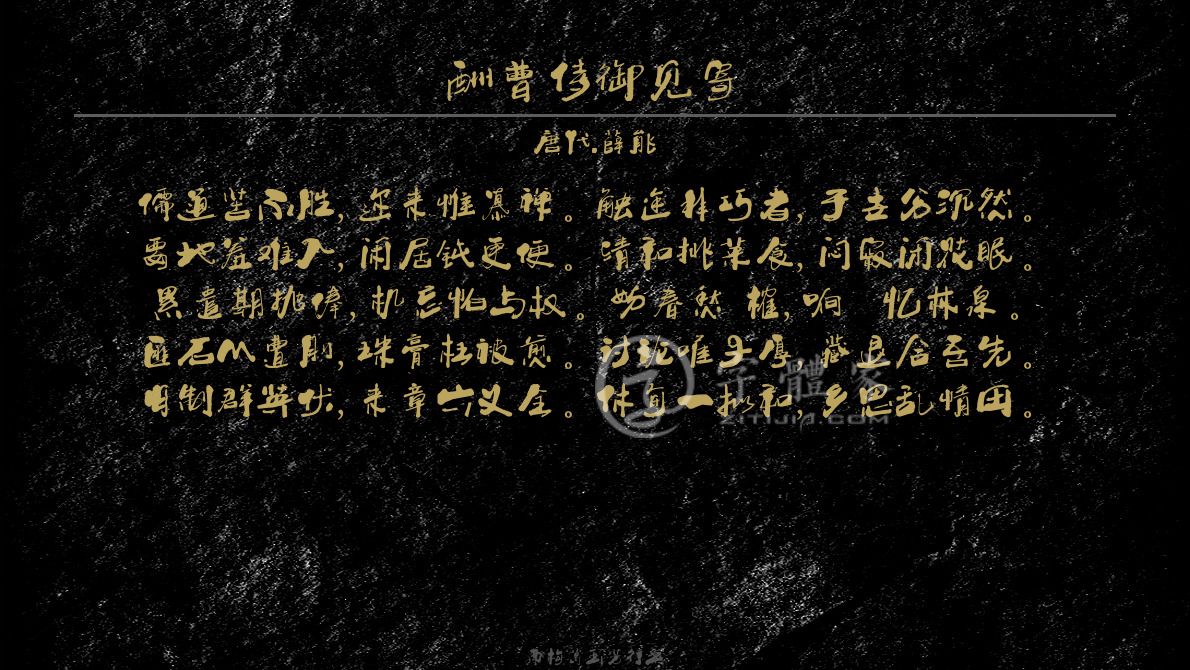 酬曹侍御见寄
唐代.薛能
儒道苦不胜,迩来惟慕禅。触途非巧者,于世分沉然。
要地羞难入,闲居钱更便。清和挑菜食,闷寂闭花眠。
累遣期抛俸,机忘怕与权。妨春愁 榷,响 忆林泉。
匪石从遭刖,珠膏枉被煎。讨论唯子厚,藏退合吾先。
明制群英伏,来章六义全。休旬一拟和,乡思乱情田。
字體家
ZITIJIA.COM